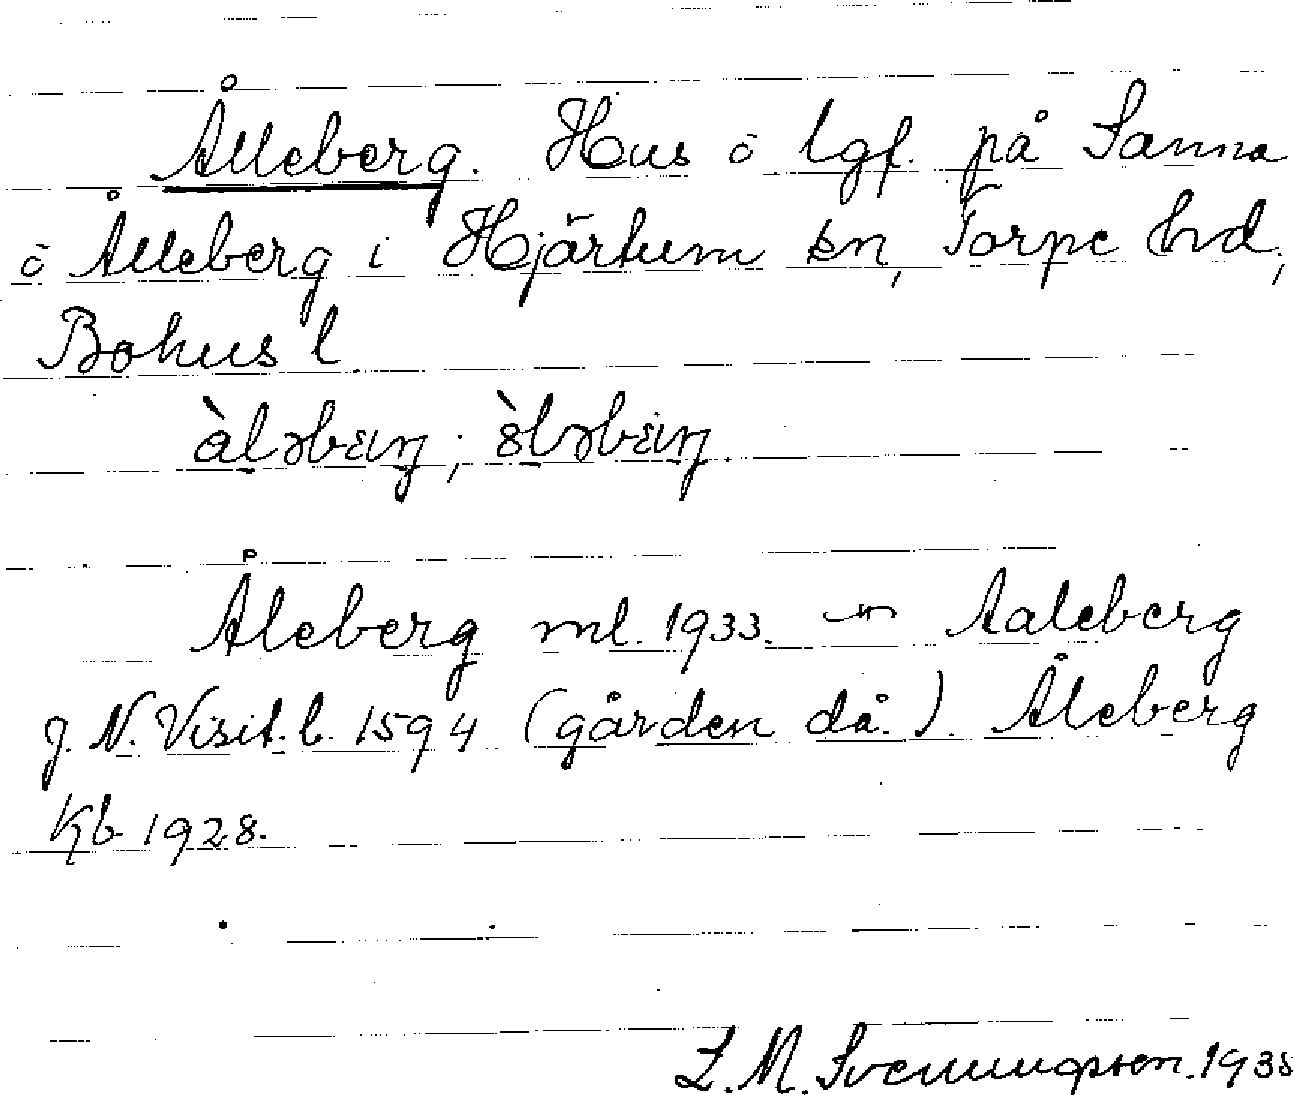 Ålleberg. Hus o lgf. på Sanna
o Ålleberg i Hjärtum sn, Torpe hd,
Bohus l.
àlǝbæŋ; òlǝbæŋ.
Åleberg ml. 1933. — Aaleberg
J. N. Visit. b. 1594 (gården då.). Åleberg
Kb 1928.
L. M. Svenungsson. 1935